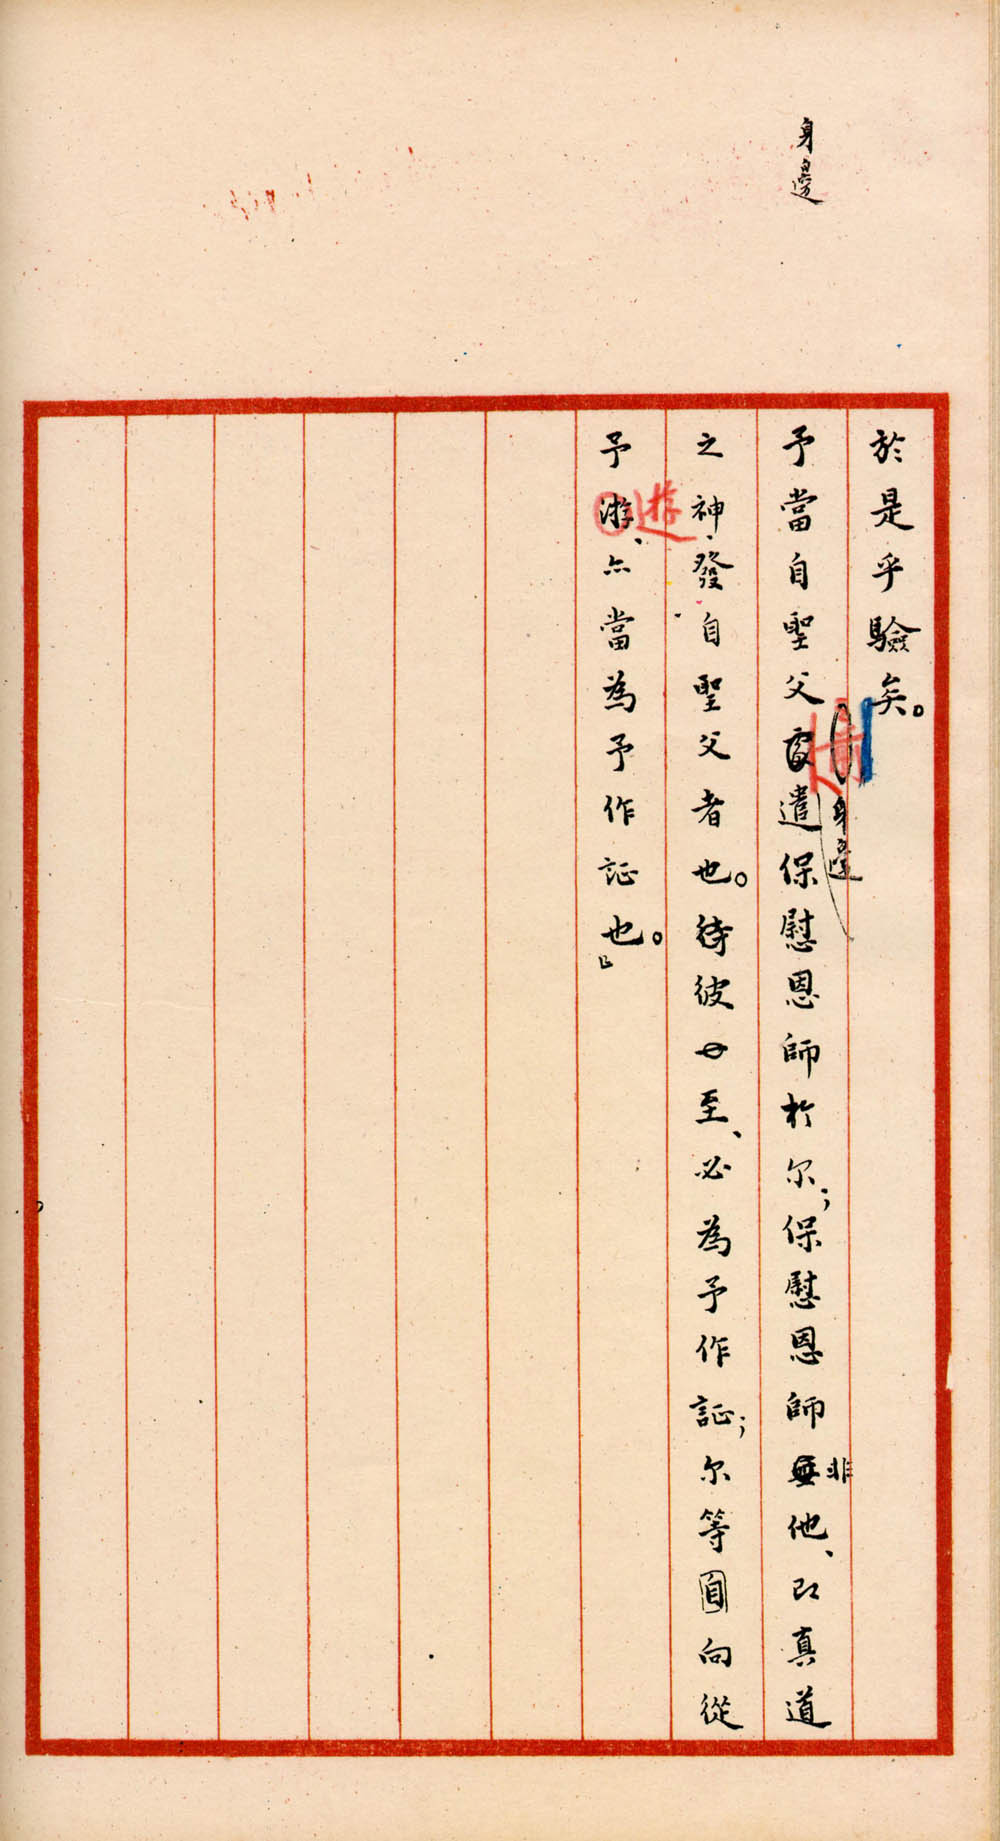 身邊
於是乎驗矣。
予當自聖父遣保慰恩師於尔；保慰恩師無他、即真道
身邊
非
之神、發自聖父者也。待彼至、必為予作証；尔等自向從
遊
予游、亦當為予作証也。」